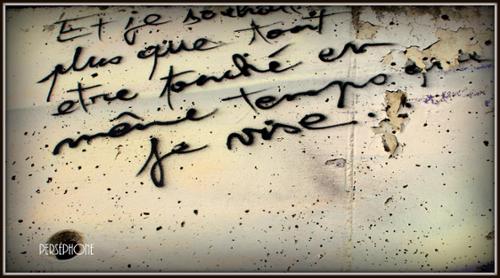 Et je souhaite
plus que tout
etre touché en
même temps que
je vise.
PERSEPHONE